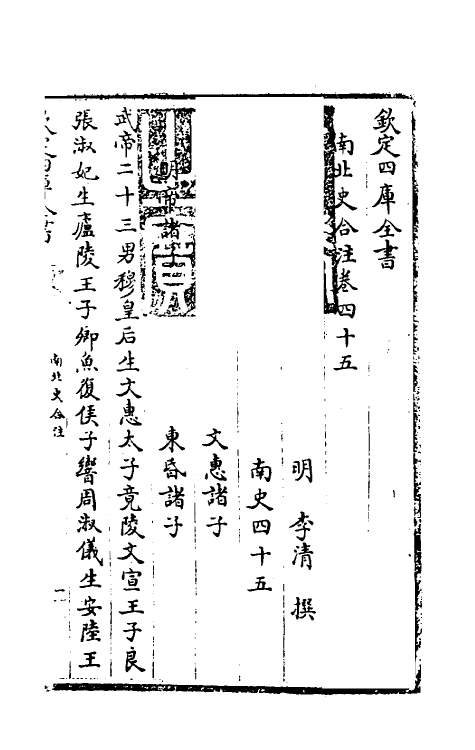 欽定四庫全書
南北史合注卷四十五
明 李清 撰
南史四十五
文惠諸子
明帝諸子 東昏諸子
武帝二十三男穆皇后生文惠太子竟陵文宣王子良
張淑妃生廬陵王子卿魚復侯子響周淑儀生安陸王
欽定四庫全書
南北史合注
一